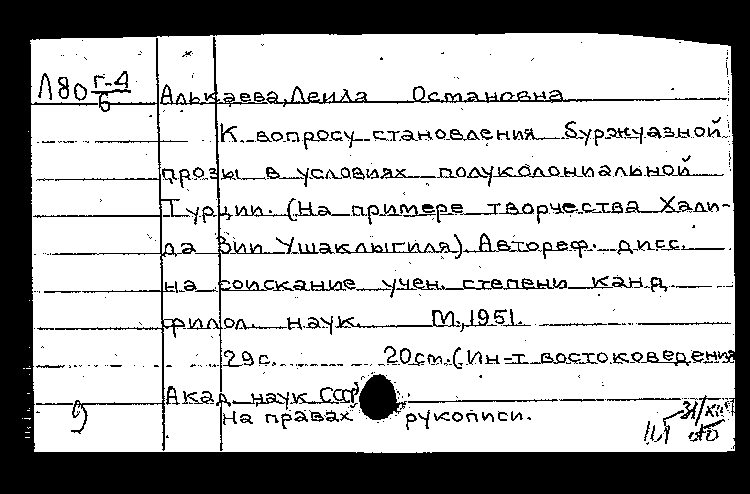 Л80 Г-4/6
Алькаева, Леила Остановна
К вопросу становления буржуазной
прозы в условиях полуколониальной
Турции. (На примере творчества Хали-
да Зии Ушаклыгиля). Автореф. дисс.
на соискание учен. степени канд.
филол. наук. М., 1951.
29с. 20см. (Ин-т востоковедения
Акад. наук СССР).
На правах рукописи.
9
31/XII